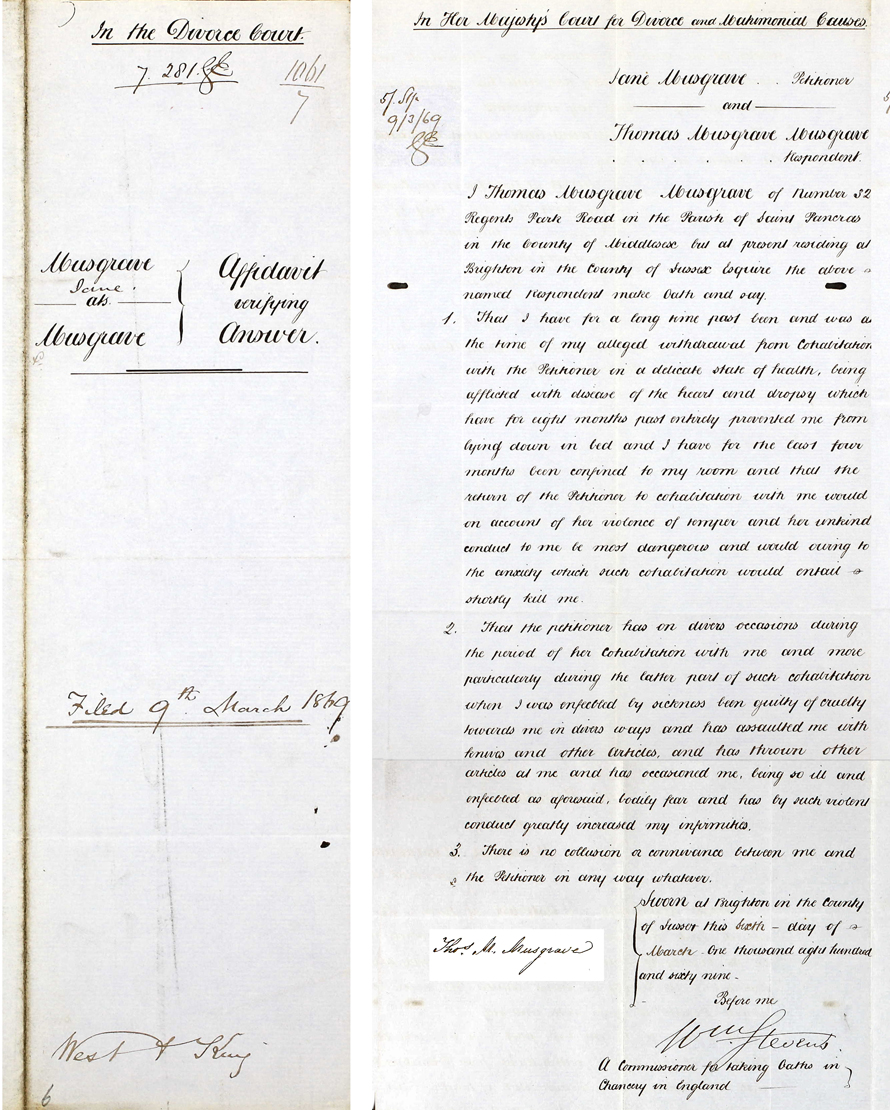 In the Divorce Court.
7. 281.
1061
7
Musgrave
Jane.
ats.
Musgrave
Affidavit
verifying
Answer.
Filed 9th. March 1869
West & King
6
In Her Majesty's Court for Divorce and Matrimonial Causes.
5/. Stp.
9/3/69
Jane Musgrave . . Petitioner
and
Thomas Musgrave Musgrave
. . . . . Respondent.
I Thomas Musgrave Musgrave of Number 52
Regents Park Road in the Parish of Saint Pancras
in the County of Middlesex but at present residing at
Brighton in the County of Sussex Esquire the above
named Respondent make Oath and say.
1. That I have for a long time past been and was at
the time of my alleged withdrawal from Cohabitation
with the Petitioner in a delicate state of health, being
afflicted with disease of the heart and dropsy which
have for eight months past entirely prevented me from
lying down in bed and I have for the last four
months been confined to my room and that the
return of the Petitioner to cohabitation with me would
on account of her violence of temper and her unkind
conduct to me be most dangerous and would owing to
the anxiety which such cohabitation would entail
shortly kill me.
2. That the petitioner has on divers occasions during
the period of her Cohabitation with me and more
particularly during the latter part of such cohabitation
when I was enfeebled by sickness been guilty of cruelty
towards me in divers ways and has assaulted me with
knives and other Articles, and has thrown other
articles at me and has occasioned me, being so ill and
enfeebled as aforesaid, bodily fear and has by such violent
conduct greatly increased my infirmities.
3. There is no collusion or connivance between me and
the Petitioner in any way whatever.
Sworn at Brighton in the County
of Sussex this Sixth – day of
March. One thousand eight hundred
and sixty nine –
Thos. M. Musgrave
Before me
Wm. Stevens.
A Commissioner for taking Oaths in
Chancery in England